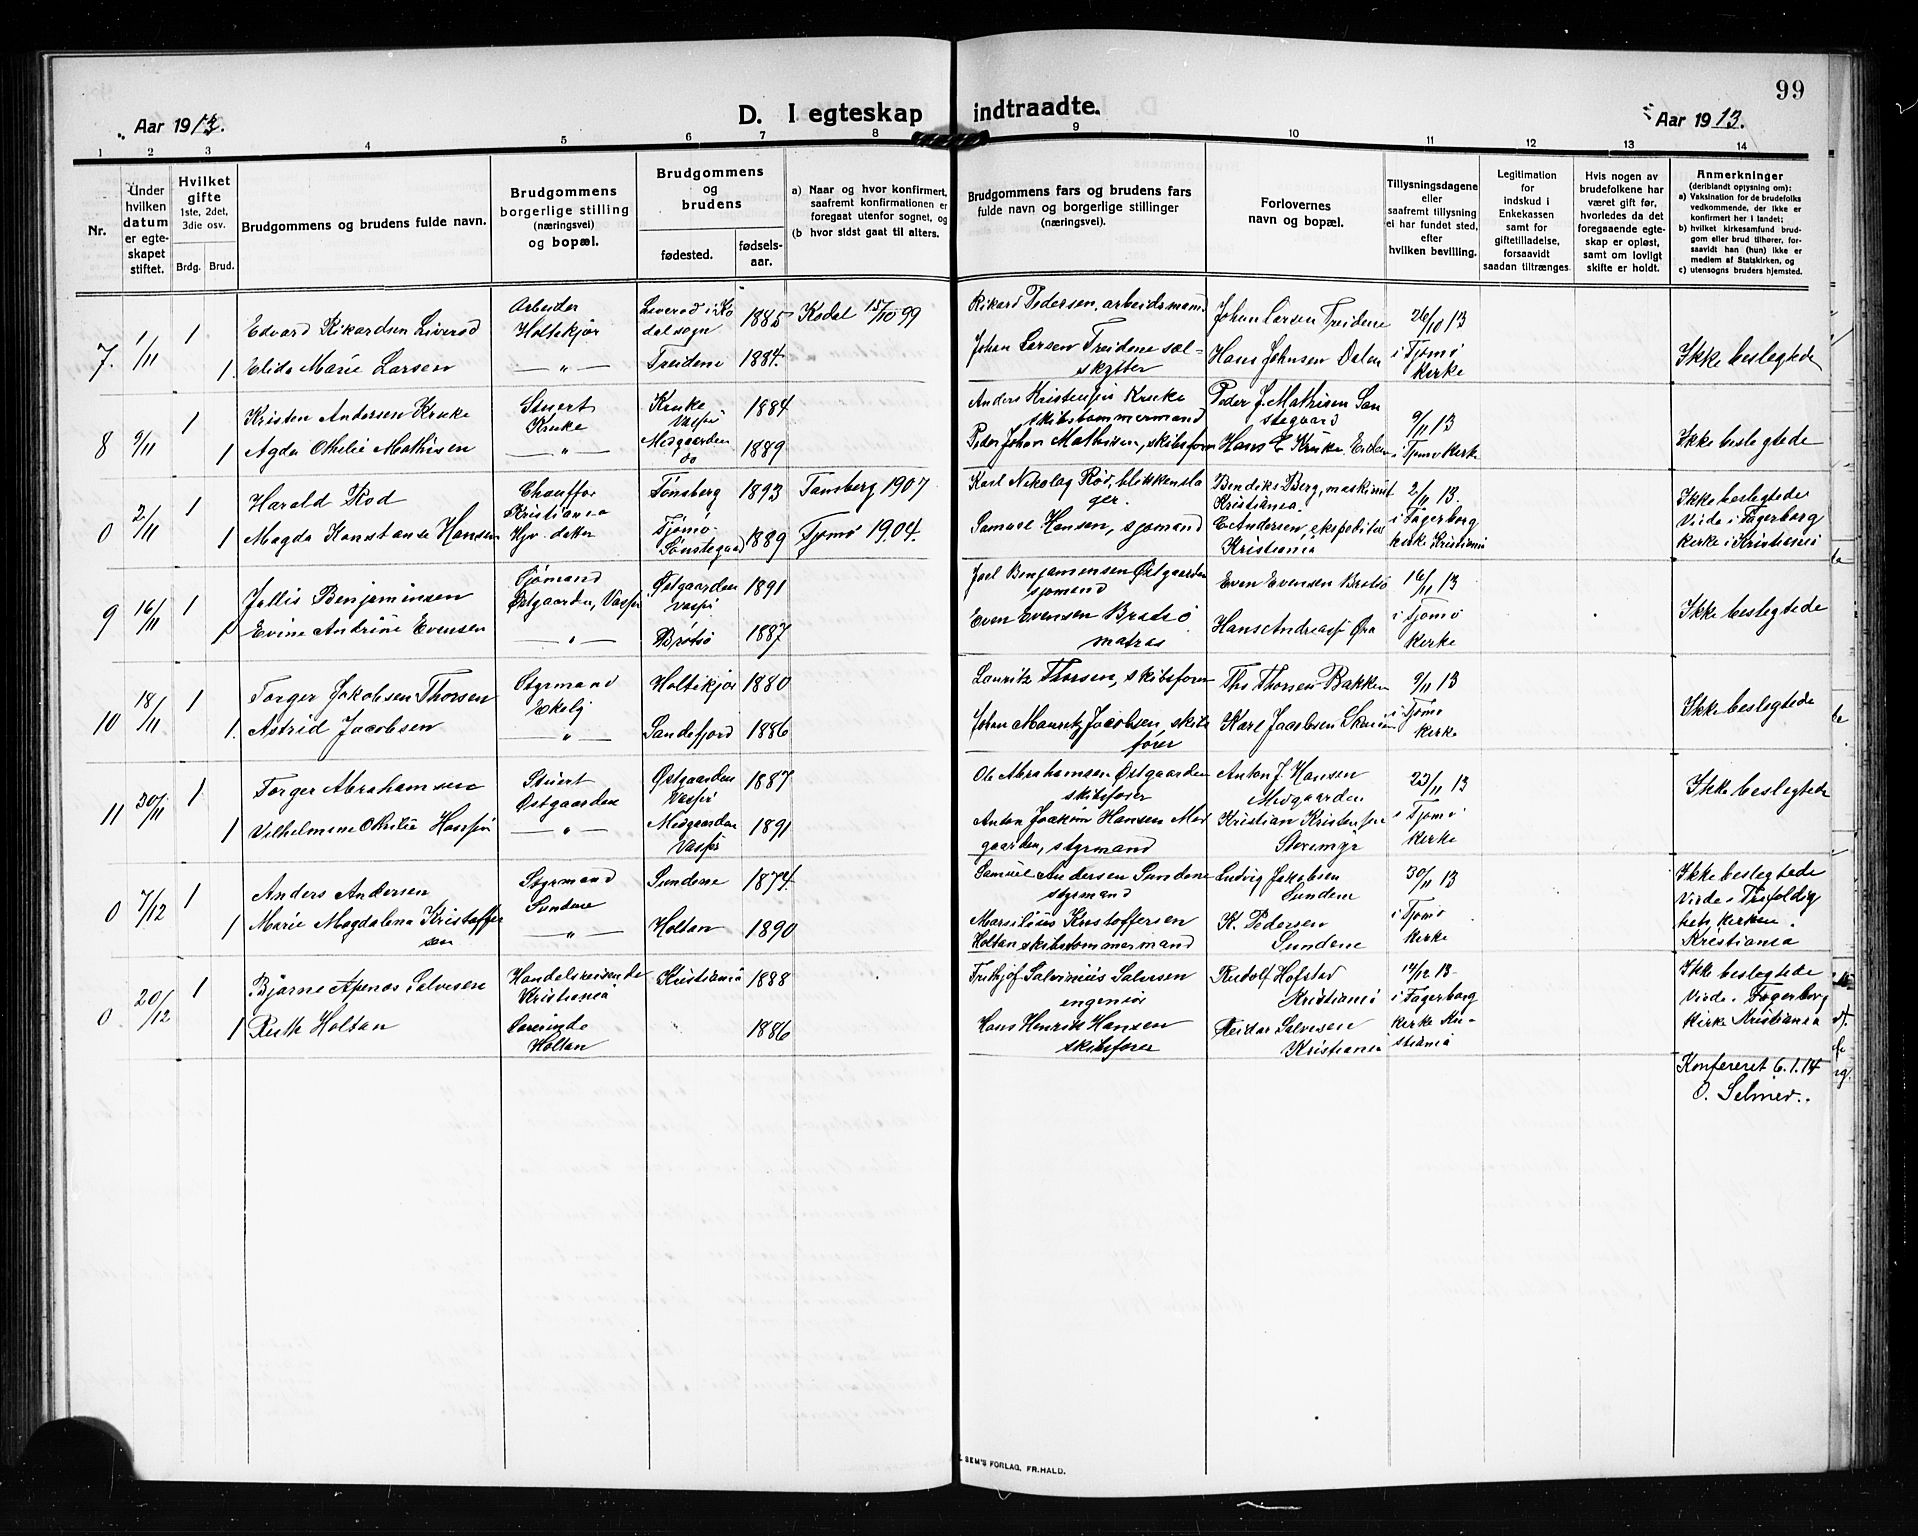 99
Aar 1913.
D. I egteskap indtraadte.
Aar 1913.
1 2 3 4 5 6 7 8 9 10 11 12 13 14
Nr.
Under hvilken datum er egteskapet stiftet.
Hvilket gifte 1ste, 2det, 3die osv.
Brdg. Brud.
Brudgommens og brudens fulde navn.
Brudgommens borgerlige stilling (næringsvei) og bopæl.
Brudgommens og brudens
fødested.
fødselsaar.
a) Naar og hvor konfirmert, saafremt konfirmationen er foregaat utenfor sognet, og
(b hvor sidst gaat til alters.
Brudgommens fars og brudens fars fulde navn og borgerlige stillinger (næringsvei).
Forlovernes navn og bopæl.
Tillysningsdagene eller saafremt tillysning ei har fundet sted, efter hvilken bevilling.
Legitimation for indskud i Enkekassen samt for giftetilladelse, forsaavidt saadan tiltrænges
Hvis nogen av brudefolkene har været gift før, hvorledes da det foregaaende egteskap er opløst, samt om lovligt skifte er holdt.
Anmerkninger
(deriblandt oplysning om):
a) Vaksination for de brudefolks vedkommende, der ikke er konfirmert her i landet;
b) hvilket kirkesamfund brudgom eller brud tilhører, forsaavidt han (hun) ikke er medlem af Statskirken, og
c) utensogns bruders hjemsted.
7. 1/11 1 Edvard Rikardsen Liverød Arbeider Holtekjær Liverød i Kodal sogn 1885 Kodal 15/10 99 Rikard Pedersen, arbeidsmand Johan Larsen Treidene 26/10 13
1. Elida Marie Larsen — " — Treidene 1884. Johan Larsen Treidene sælskytter Hans Johnsen Dalen i Tjømø kirke Ikke beslegtede
8 9/11 1 Kristen Andersen Kruke Stuert Kruke Kruke Vasser 1884 Anders Kristensen Kruke skibstømmermand Peder J. Mathisen 9/11 13
1 Agda Othilie Mathisen — " — Medgaarden do 1889 Peder Johan Mathisen, skibsfører Hans E. Kruke i Tjømø kirke Ikke beslegtede
0 2/11 1 Harald Rød Chauffør Kristiania Tønsberg 1893 Tønsberg 1907 Karl Nikolay Rød, blikkenslager. Bendiks Berg, maskinist Kristiania 2/11 13.
1 Magda Konstanse Hansen Hjv. datter Tjømø Sønstegaard 1889 Tjømø 1904. Samuel Hansen, sjømand E. Andersen, ekspeditør Kristiania i Fagerborg kirke Kristiania Ikke beslegtede Viede i Fagerborg kirke i Kristiania
9 16/11 1 Jallis Benjaminsen Sjømand Østgaarden, Vasser Østgaarden Vasser 1891 Joel Benjaminsen Østgaarden sjømand Even Evensen Brøtsø 16/11 13
1 Evine Andrine Evensen — " — Brøtsø 1887 Even Evensen Brøtsø matros Hans Andreas Øra i Tjømø kirke Ikke beslegtede
10 18/11 1 Torger Jakobsen Thorsen Styrmand Ekely Holtekjær 1880 Lauritz Thorsen, skibsfører Ths Thorsen Bakken 9/11 13
1. Astrid Jacobsen — " — Sandefjord 1886 Johan Mauritz Jacobsen skibsfører Karl Jacobsen i Tjømø kirke Ikke beslegtede
11 30/11 1 Torger Abrahamsen Stuert Østgaarden Østgaarden Vasser 1887 Ole Abrahamsen Østgaarden skibsfører Anton J. Hansen Medgaarden 23/11 13
1 Vilhelmine Othilie Hansen — " — Medgaarden Vasser 1891 Anton Joakim Hansen Medgaarden, styrmand Kristian Kristensen Storemyr i Tjømø kirke Ikke beslegtede
0 7/12 1 Anders Andersen Styrmand Sundene Sundene 1874. Samuel Andersen Sundene styrmand Ludvig Jakobsen Sundene 30/11 13
1 Marie Magdalena Kristoffersen — " — Holtan 1890 Kristoffersen Holtan skibstømmermand K. Pedersen Sundene i Tjømø kirke Ikke beslegtede Viede i Trefoldighets kirken Kristiania
0 20/12 1 Bjarne Apenæs Salvesen Handelsreisende Kristiania Kristiania 1888 Frithjof Salvesen ingeniør Rudolf Hofstad Kristiania 14/12 13
1 Ruth Holtan Holtan 1886 Hans Henrik Hansen skibsfører Reidar Salvesen Kristiania i Fagerborg kirke Kristiania Ikke beslegtede Viede i Fagerborg kirke Kristiania
Konfereret 6.1.14
O. Selmer.
SEM'S FORLAG, FR.HALD.